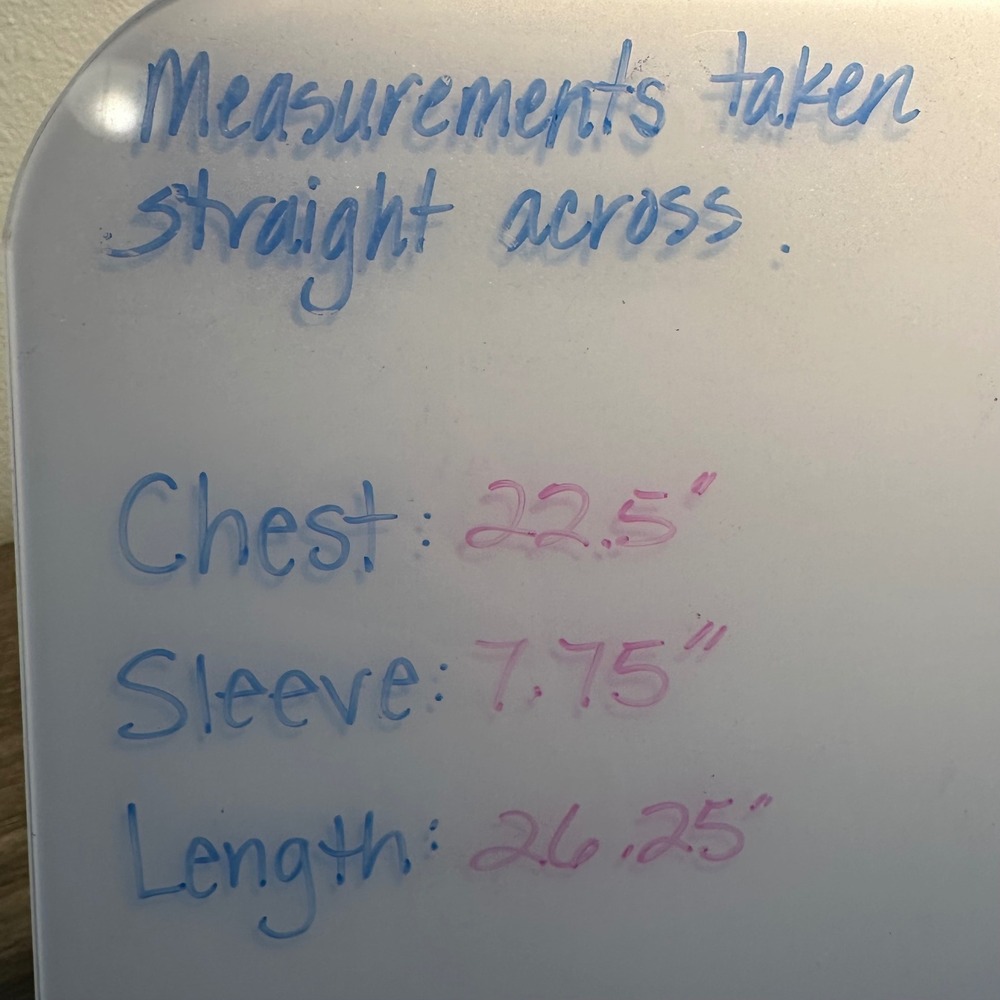 Measurements taken
straight across.
Chest: 22.5"
Sleeve: 7.75"
Length: 26.25"